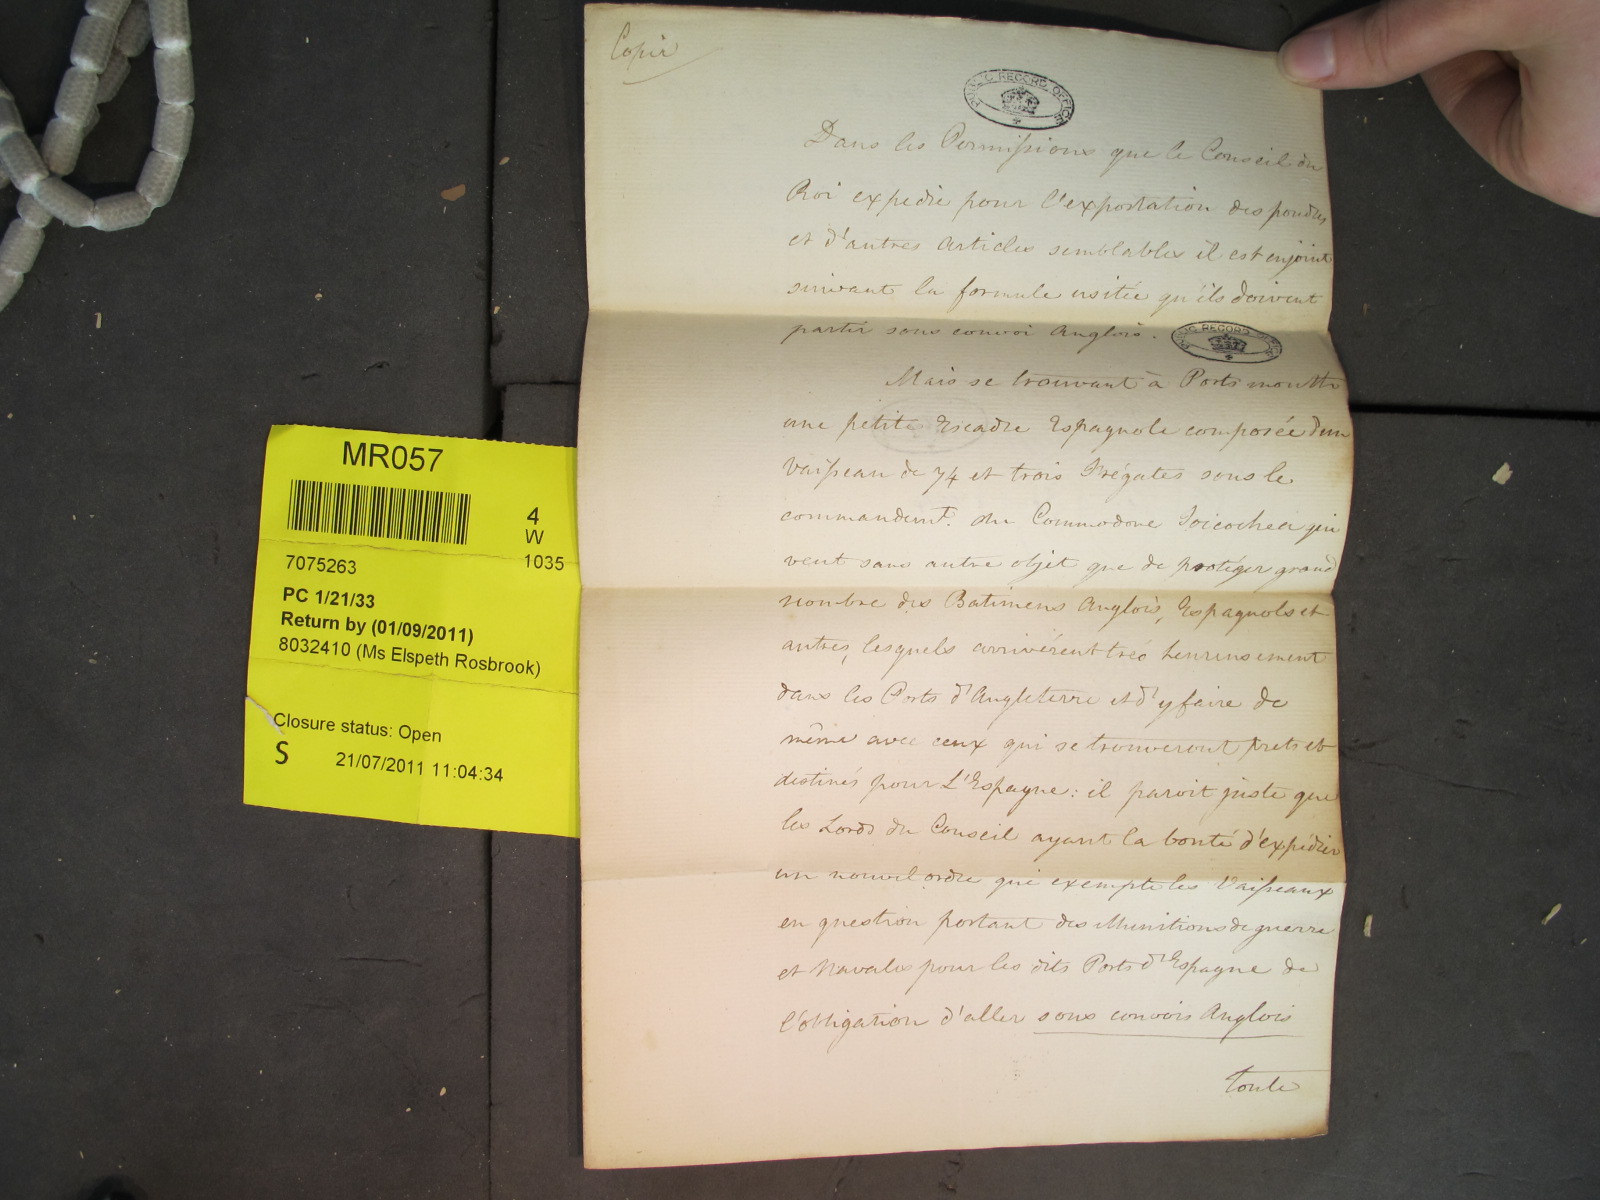 Copie
PUBLIC RECORD OFFICE
Dans les Permissions que le Conseil du
Roi expedie pour l'exportation des poudres
et d'autres articles semblables il est enjoint
suivant la formule usitée qu'ils doivent
partir sous convoi Anglois.
PUBLIC RECORD OFFICE
Mais se trouvant à Portsmouth
une petite Escadre Espagnole composée d'un
Vaisseau de 74 et trois Frégates sous le
commandemt. du Commodore Goicochea qui
vent sans autre objet que de protéger grand
nombre des Batimens Anglois, Espagnols et
autres, lesquels arrivérent tres heureusement
dans les Ports d'Angleterre et d'y faire de
même avec ceux qui se trouveront prets et
destinés pour L'Espagne: il paroit juste que
les Lords du Conseil ayant la bonté d'expédier
un nouvel ordre qui exempte les Vaisseaux
en question portant des Munitions de guerre
et Navales pour les dits Ports d'Espagne de
l'obligation d'aller sous convois Anglois
toute
MR057
4
W
1035
7075263
PC 1/21/33
Return by (01/09/2011)
8032410 (Ms Elspeth Rosbrook)
Closure status: Open
S
21/07/2011 11:04:34